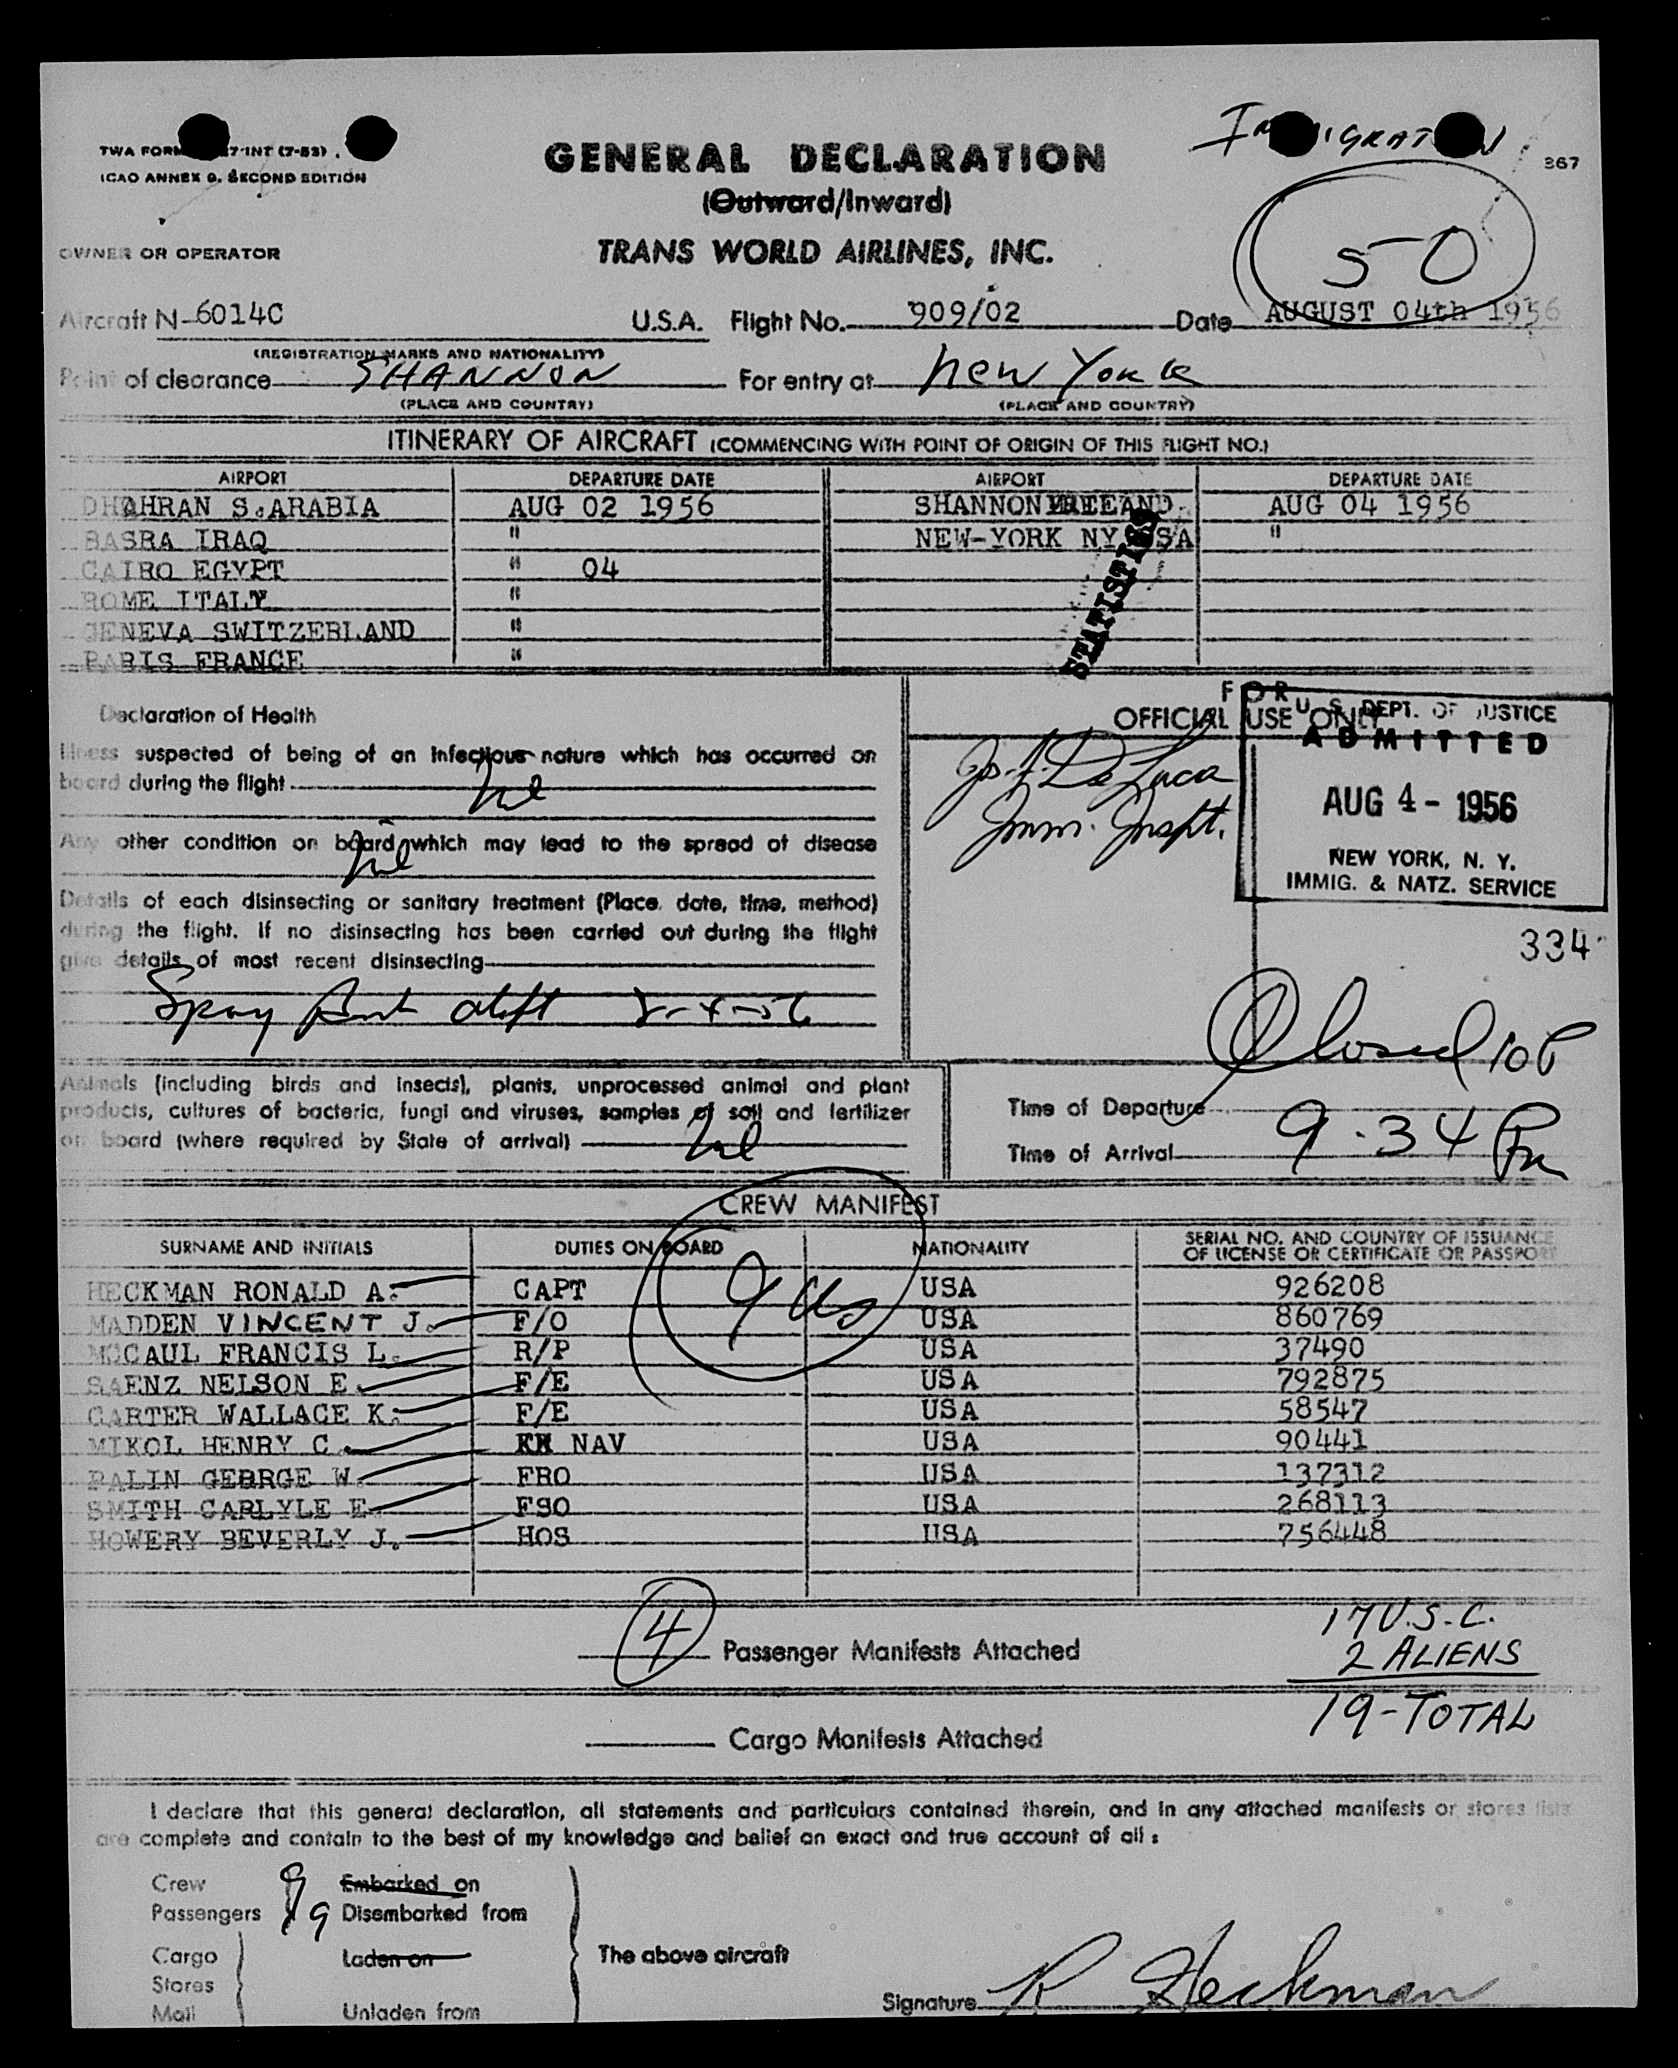 IMMIGRATION
TWA FORM 7-INT (7-53)
ICAO ANNEX 9. SECOND EDITION
GENERAL DECLARATION
367
(Outward/Inward)
50
OWNER OR OPERATOR
TRANS WORLD AIRLINES, INC.
Aircraft N-6014C U.S.A. Flight No. 909/02 Date AUGUST 04th 1956
(REGISTRATION MARKS AND NATIONALITY)
Point of clearance SHANNON For entry at New York
(PLACE AND COUNTRY) (PLACE AND COUNTRY)
ITINERARY OF AIRCRAFT (COMMENCING WITH POINT OF ORIGIN OF THIS FLIGHT NO.)
AIRPORT DEPARTURE DATE AIRPORT DEPARTURE DATE
DHAHRAN S.ARABIA AUG 02 1956 SHANNON AUG 04 1956
BASRA IRAQ " NEW-YORK NY USA "
CAIRO EGYPT " 04
ROME ITALY "
GENEVA SWITZERLAND "
PARIS FRANCE "
STATISTICS
FOR
OFFICIAL USE ONLY
U. S. DEPT. OF JUSTICE
ADMITTED
AUG 4 - 1956
NEW YORK, N. Y.
IMMIG. & NATZ. SERVICE
Jos. F. De Luca
Imm. Inspt.
334
Declaration of Health
Illness suspected of being of an infectious nature which has occurred on
board during the flight Nil
Any other condition on board which may lead to the spread of disease
Nil
Details of each disinsecting or sanitary treatment (Place, date, time, method)
during the flight. If no disinsecting has been carried out during the flight
give details of most recent disinsecting
Spray 8-4-56
Closed 10P
Animals (including birds and insects), plants, unprocessed animal and plant
products, cultures of bacteria, fungi and viruses, samples of soil and fertilizer
on board (where required by State of arrival) Nil
Time of Departure
Time of Arrival 9.34 Pm
CREW MANIFEST
SURNAME AND INITIALS DUTIES ON BOARD NATIONALITY SERIAL NO. AND COUNTRY OF ISSUANCE
OF LICENSE OR CERTIFICATE OR PASSPORT
9 US
HECKMAN RONALD A. CAPT USA 926208
MADDEN VINCENT J. F/O USA 860769
MCCAUL FRANCIS L. R/P USA 37490
SAENZ NELSON E. F/E USA 792875
CARTER WALLACE K. F/E USA 58547
MIKOL HENRY C. NAV USA 90441
PALIN GEBRGE W. FRO USA 137312
SMITH CARLYLE E. FSO USA 268113
HOWERY BEVERLY J. HOS USA 756448
4 Passenger Manifests Attached
17 U.S.C.
2 ALIENS
19-TOTAL
Cargo Manifests Attached
I declare that this general declaration, all statements and particulars contained therein, and in any attached manifests or stores lists
are complete and contain to the best of my knowledge and belief an exact and true account of all:
Crew 9 Embarked on
Passengers 19 Disembarked from
Cargo Laden on The above aircraft
Stores
Mail Unladen from
Signature R Heckman